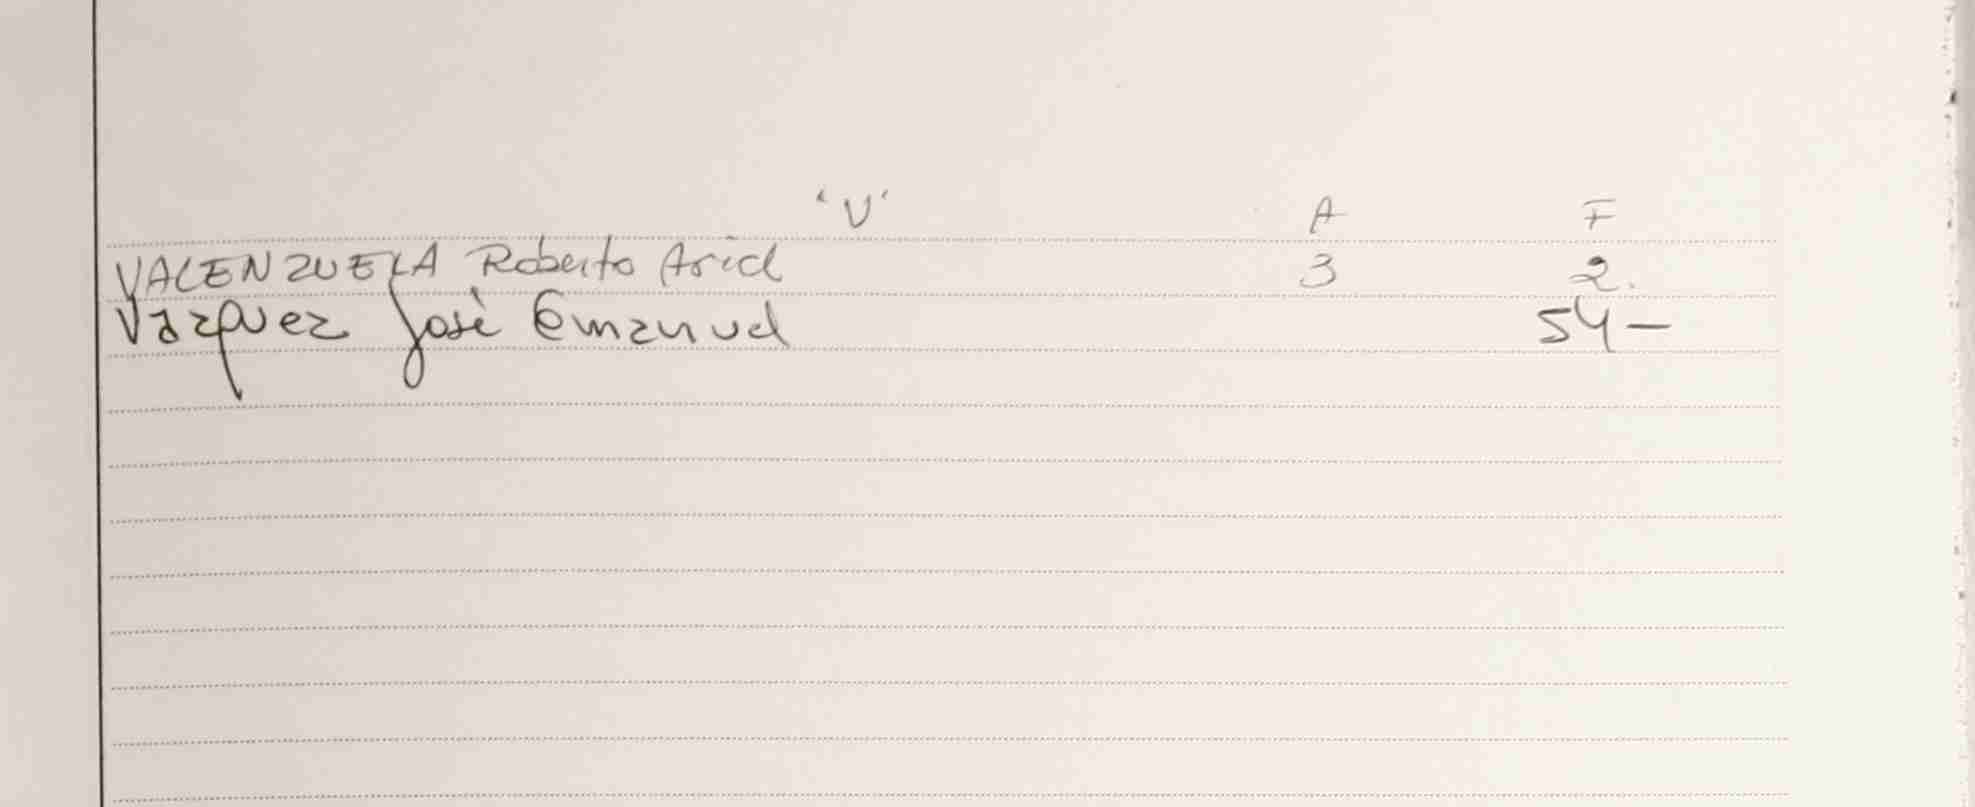 "V" A F
VALENZUELA Roberto Ariel 3 2.
Vazquez José Emanuel 54 -